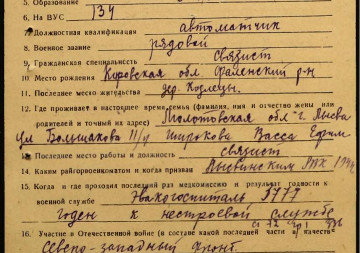 5. Образование
6. На ВУС 134
7. Должностная квалификация автоматчик
8. Военное звание рядовой
9. Гражданская специальность связист
10 Место рождения Кировская обл Фаленский р-н
11. Последнее место жительства дер. Козлецы.
12. Где проживает в настоящее время семья (фамилия, имя и отчество жены или
родителей и точный их адрес) Молотовская обл г. Лысва
ул Большакова 11/9 Широкова Васса Ефим
13. Последнее место работы и должность связист
14. Каким райгорвоенкоматом и когда призван Лысвинским РВК 194
15. Когда и где проходил последний раз медкомиссию и результат годности к
военной службе Эвакогоспиталь 5777
годен к нестроевой службе
16. Участие в Отечественной войне (в составе какой последней части и в качестве
Северо-западный фронт